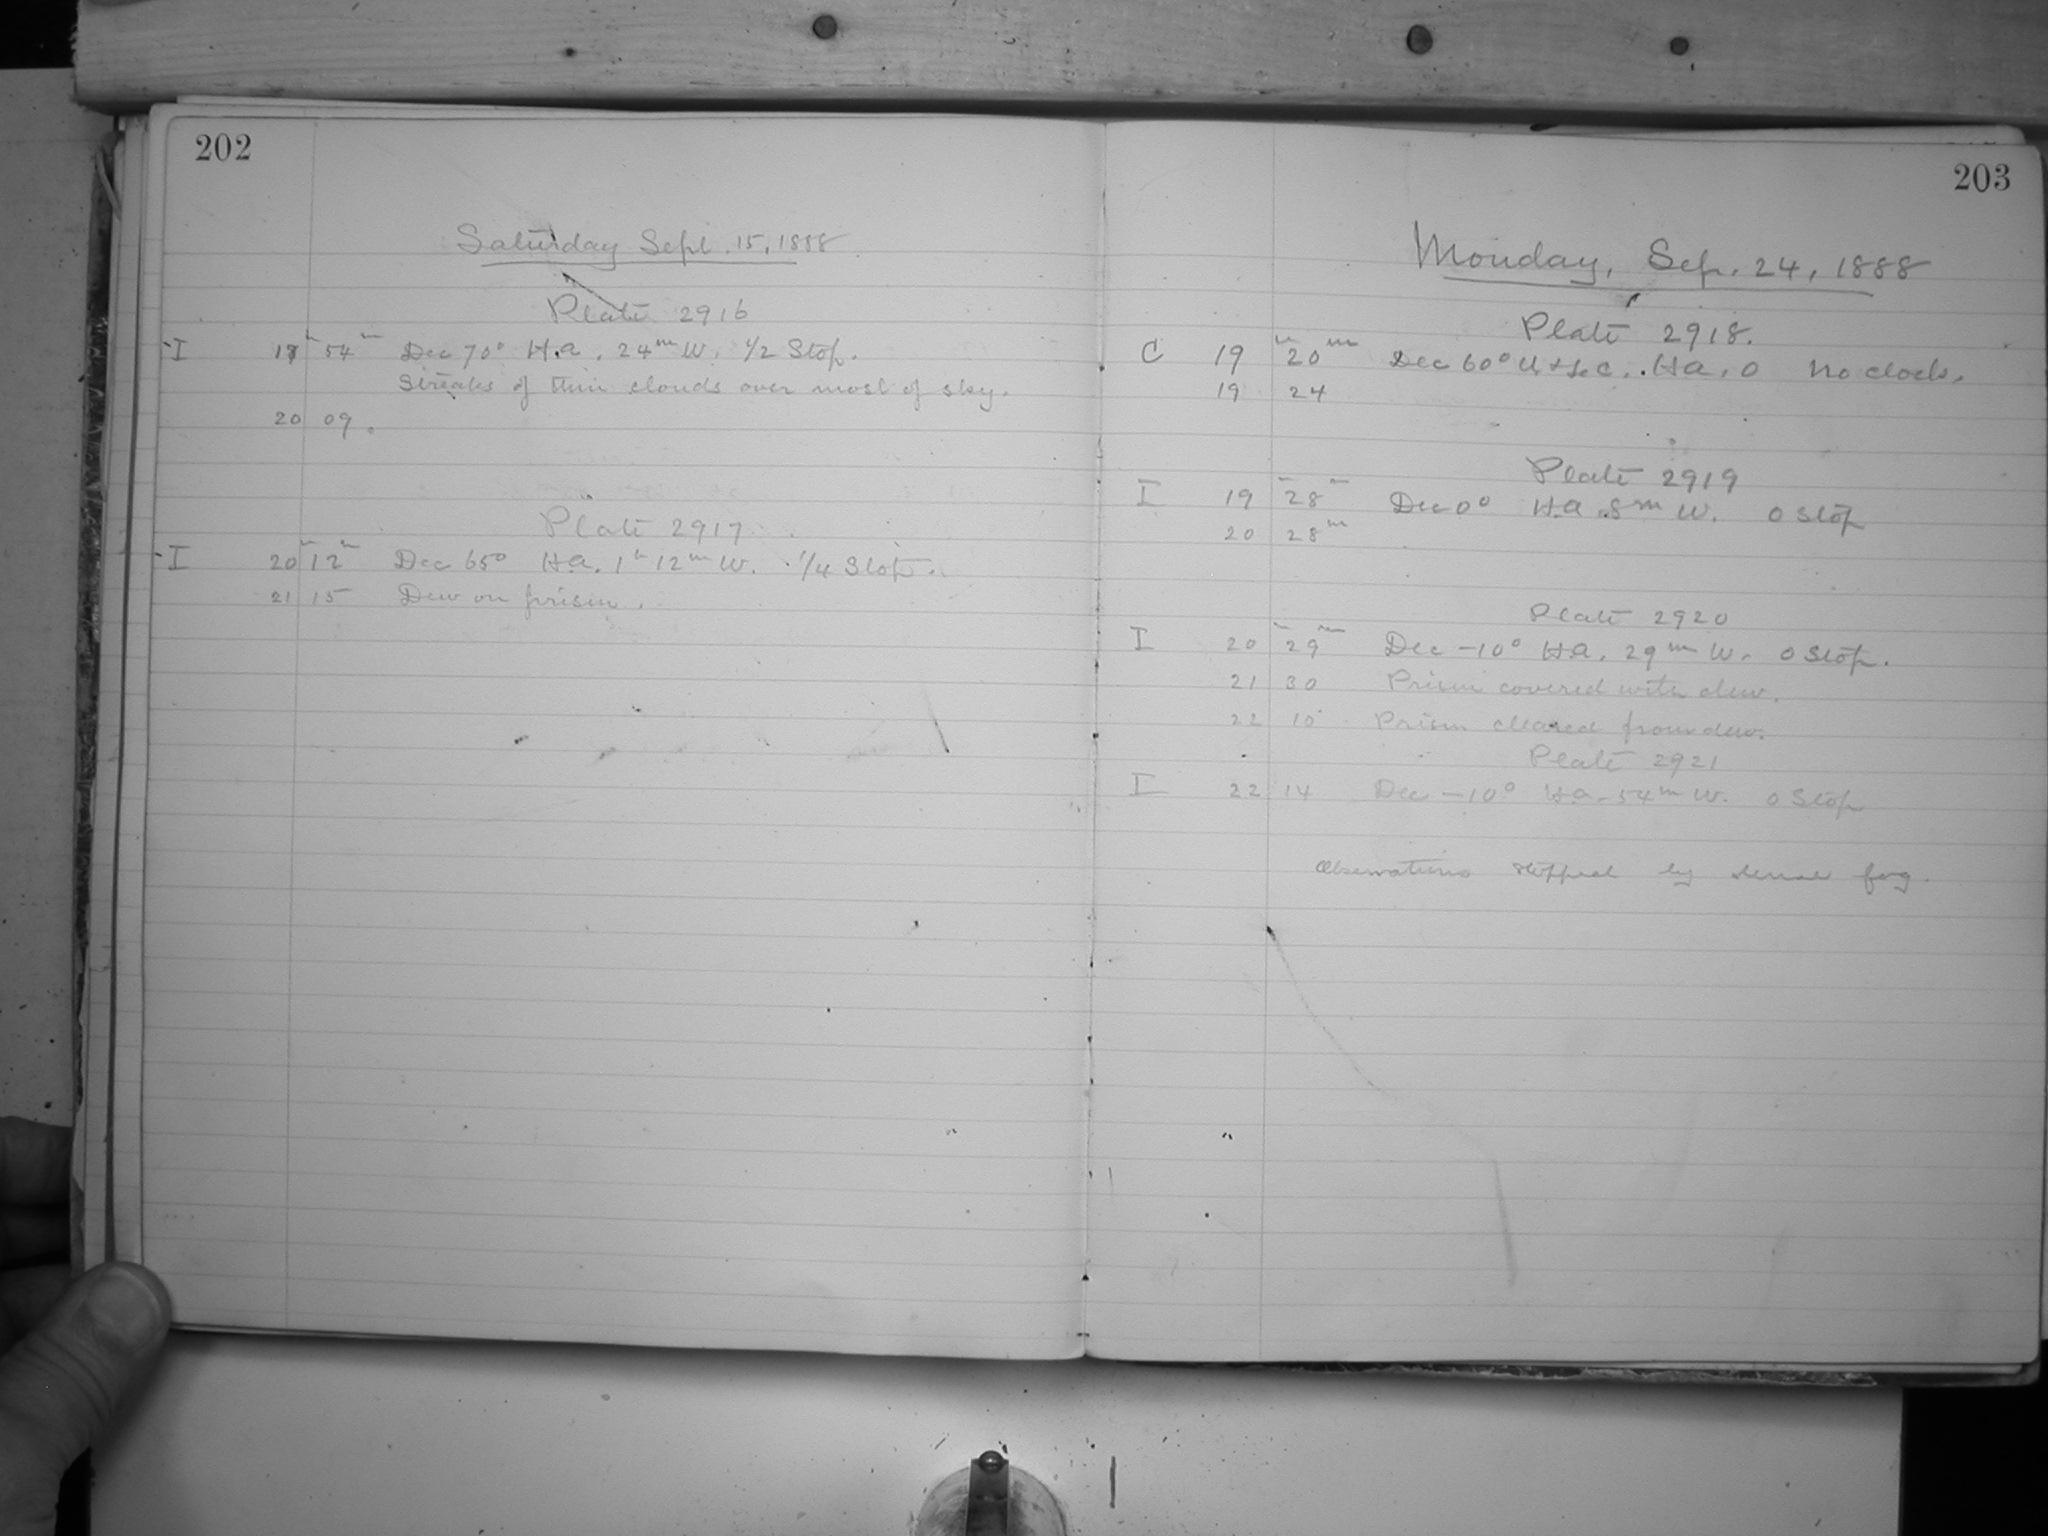 202
Saturday Sept. 15, 1888
Plate 2916
I 17h 54m Dec 70° H.a. 24m W. 1/2 Stop.
Streaks of thin clouds over most of sky.
20 09.
Plate 2917
I 20h 12m Dec 65° H.a. 1h 12m W. 1/4 Stop.
21 15 Dew on prism.
203
Monday, Sep. 24, 1888
Plate 2918.
C 19h 20m Dec 60° U + L C. H.a. 0 No clock.
19 24
Plate 2919
I 19h 28m Dec 0° H.a. 8m W. 0 Stop
20 28m
Plate 2920
I 20h 29m Dec -10° H.a. 29m W. 0 Stop.
21 30 Prism covered with dew.
22 10 Prism cleared from dew.
Plate 2921
I 22 14 Dec -10° H.a. 54m W. 0 Stop
Observations stopped by dense fog.